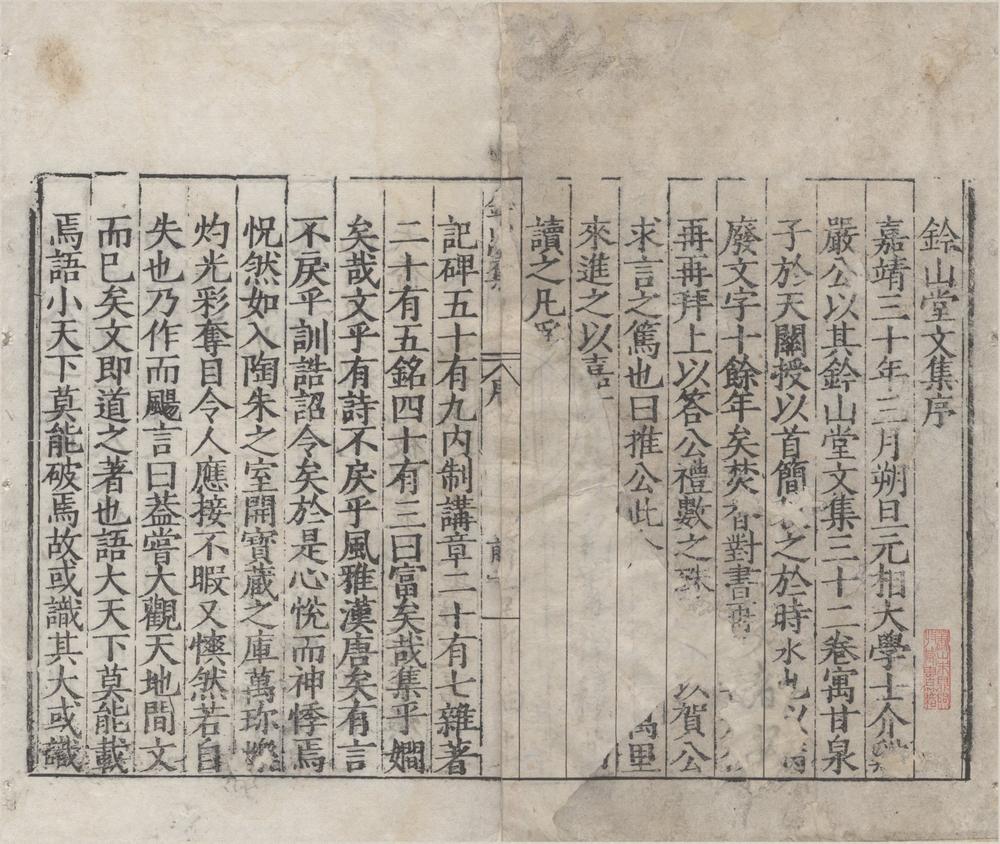 鈐山堂文集序
嘉靖三十年三月朔旦元相大學士介谿
嚴公以其鈐山堂文集三十二卷寓甘泉
子於天關授以首簡之於時水也以
廢文字十餘年矣焚香對書
再再拜上以答公禮數之殊以賀公
求言之篤也曰推公此萬里
來進之以嘉
讀之凡
序
記碑五十有九內制講章二十有七雜著
二十有五銘四十有三曰富矣哉集乎嫺
矣哉文乎有詩不戾乎風雅漢唐矣有言
不戾乎訓誥詔令矣於是心悅而神悸焉
怳然如入陶朱之室開寶藏之庫萬珍
灼光彩奪目令人應接不暇又懊然若自
失也乃作而颺言曰葢嘗大觀天地間文
而已矣文即道之著也語大天下莫能載
焉語小天下莫能破焉故或識其大或識